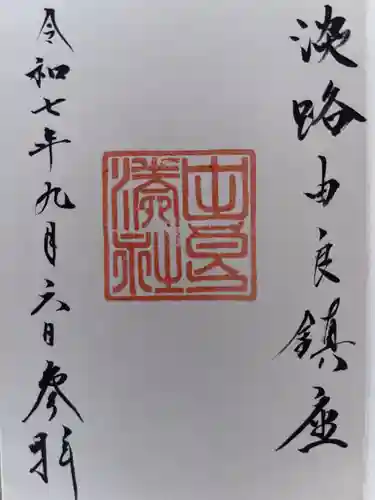 淡路由良鎮座
由良湊社
令和七年九月六日参拝